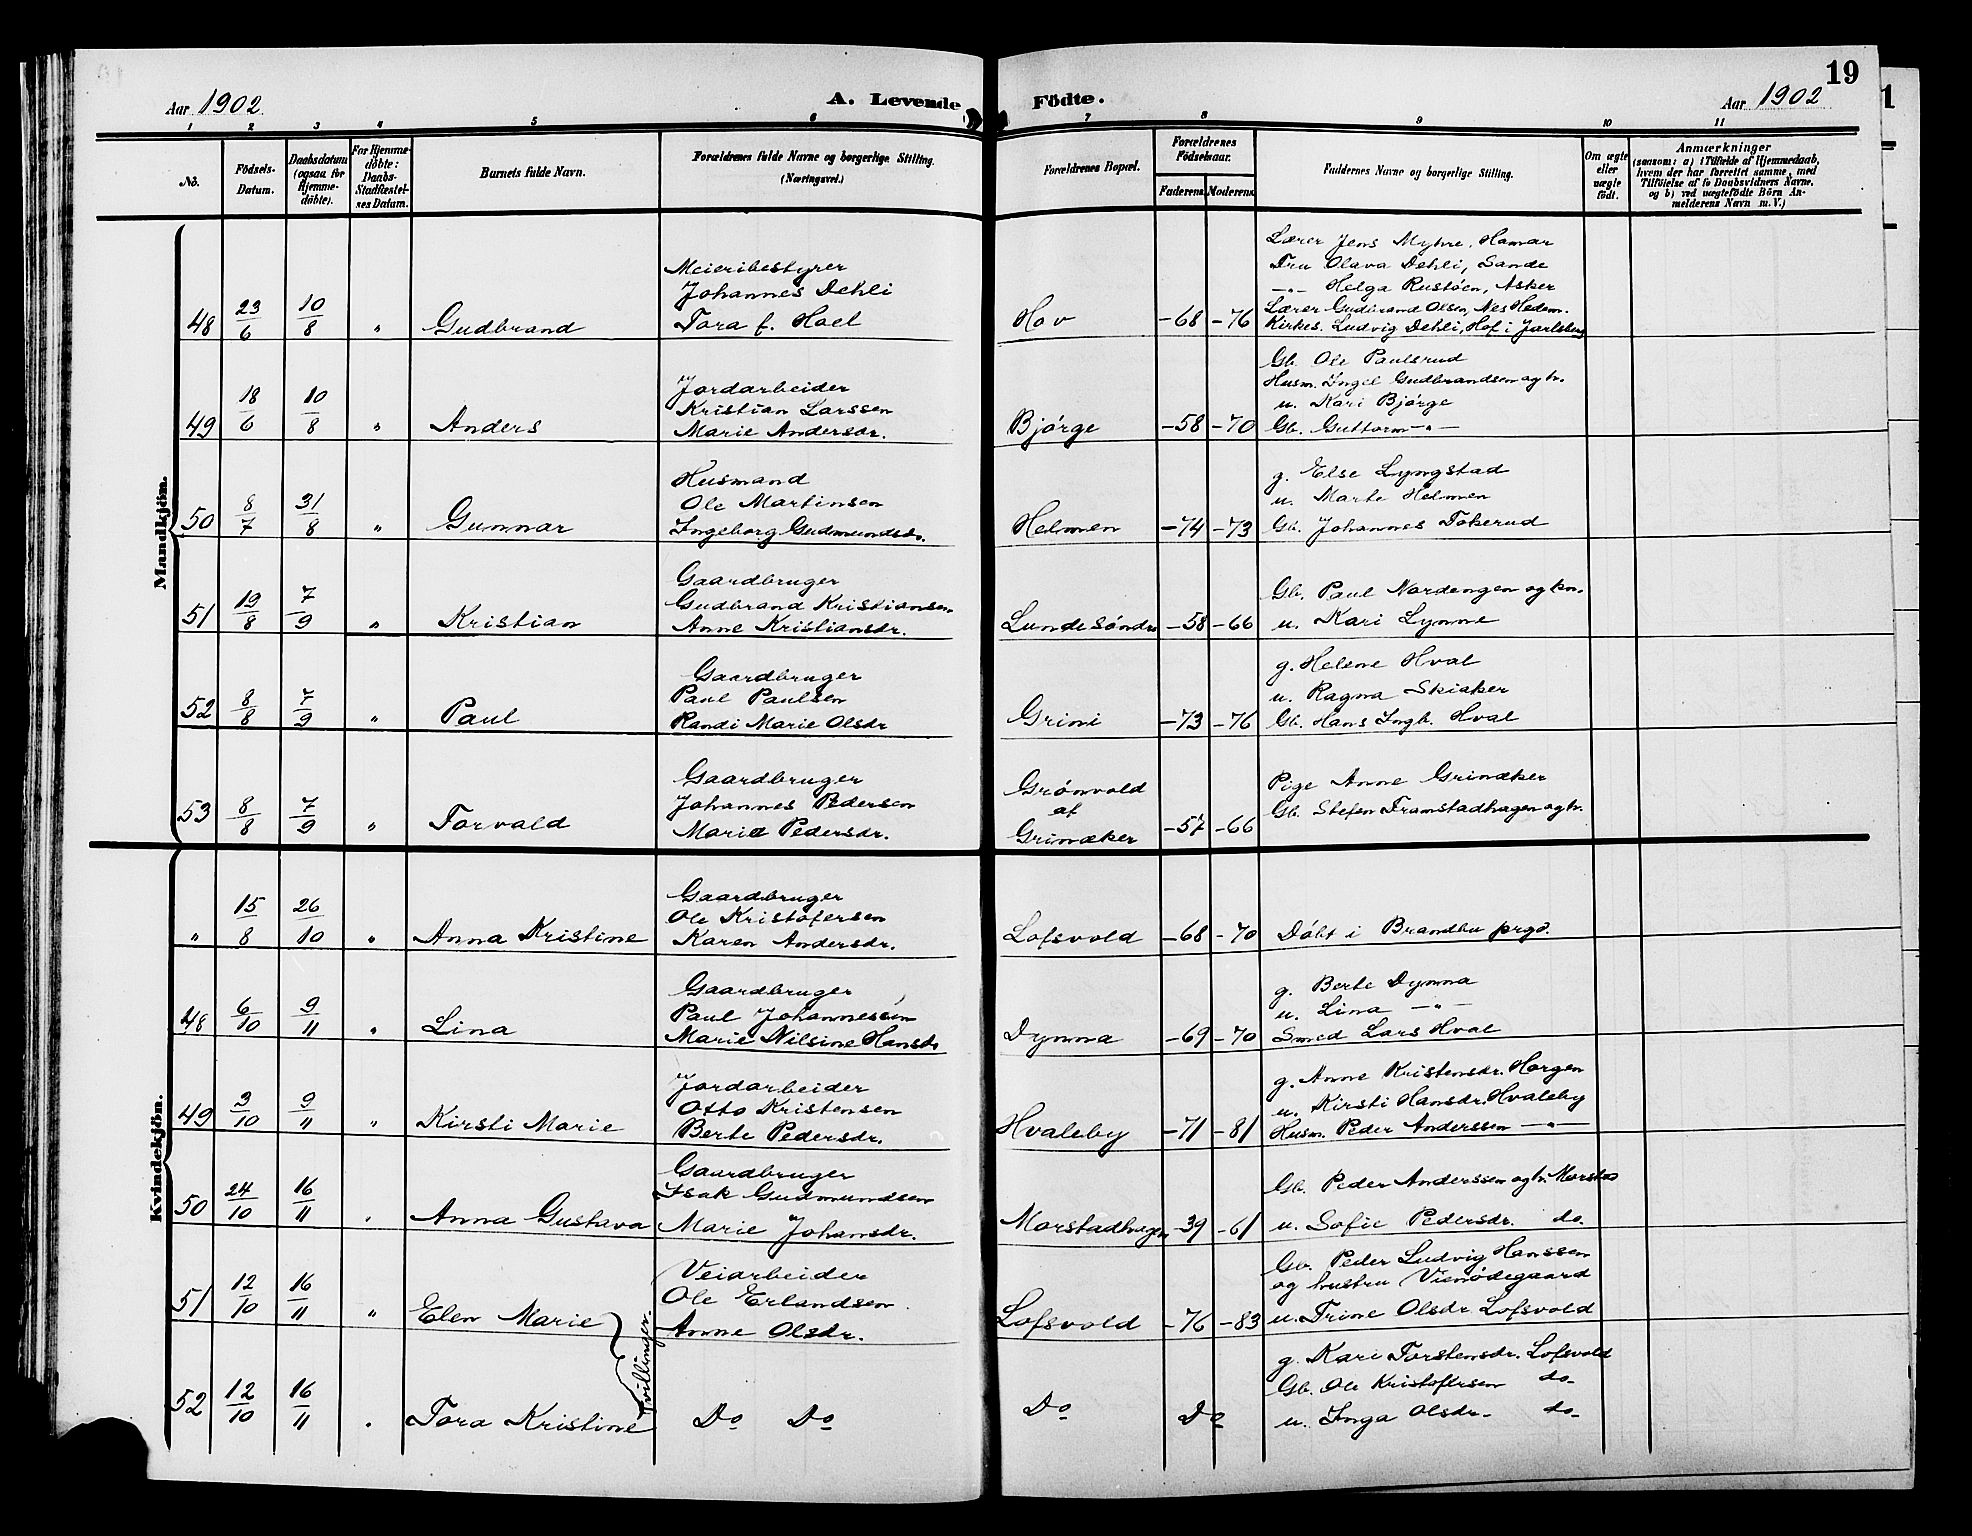 19
Aar 1902
A. Levende Födte.
Aar 1902
1 2 3 4 5 6 7 8 9 10 11
No.
Födsels-
Datum.
Daabsdatum
(ogsaa for
Hjemme-
döbte).
For Hjemme-
döbte:
Daabs-
Stadfæstel-
ses Datum.
Barnets fulde Navn.
Forældrenes fulde Navne og borgerlige Stilling.
(Næringsvei.)
Forældrenes Bopæl.
Forældrenes
Födselsaar.
Faderens.
Moderens.
Faddernes Navne og borgerlige Stilling.
Om ægte
eller
uægte
födt.
Anmærkninger
(saasom: a) i Tilfælde af Hjemmedaab,
hvem der har forrettet samme, med
Tilföielse af to Daabsvidners Navne,
og b) ved uægtefödte Börn An-
melderens Navn m. V.)
Mandkjön.
48 23/6 10/8 " Gudbrand
Meieribestyrer
Johannes Dehli
Tora f. Hoel
Hov -68 -76
Lærer Jens Myhre, Hamar
Fru Olava Dehli, Sande
-"- Helga Rustøen, Asker
Lærer Gudbrand Olsen, Nes Hedm.
Kirkes. Ludvig Dehli, Hof i Jarlsberg
49 18/6 10/8 " Anders
Jordarbeider
Kristian Larssen
Marie Andersdr.
Bjørge -58 -70
Gb. Ole Paulsrud
Husm. Ingel Gudbrandsen og h.
u. Kari Bjørge
Gb. Guttorm -"-
50 8/7 31/8 " Gunnar
Husmand
Ole Martinsen
Ingeborg Gudmundsdr.
Helmen -74 -73
g. Else Lyngstad
u. Marte Helmen
Gb. Johannes Tokerud
51 19/8 7/9 " Kristian
Gaardbruger
Gudbrand Kristiansen
Anne Kristiansdr.
Lunde søndre -58 -66
Gb. Paul Nordengen og kon.
u. Kari Lynne
52 8/8 7/9 " Paul
Gaardbruger
Paul Paulsen
Randi Marie Olsdr
Grini -73 -76
g. Helene Hval
u. Ragna Skiaker
Gb. Hans Ingb. Hval
53 8/8 7/9 " Torvald
Gaardbruger
Johannes Pedersen
Marie Pedersdr.
Grønvold
af
Grinaker -57 -66
Pige Anne Grinaker
Gb. Stefen Framstadhagen og h.
Kvindekjön.
" 15/8 26/10 " Anna Kristine
Gaardbruger
Ole Kristofersen
Karen Andersdr.
Lofsvold -68 -70
Døbt i Brandbu prgd.
48 6/10 9/11 " Lina
Gaardbruger
Paul Johannessen
Marie Nilsine Hansdr
Dynna -69 -70
g. Berte Dynna
u. Lina -"-
Smed Lars Hval
49 3/10 9/11 " Kirsti Marie
Jordarbeider
Otto Kristensen
Berte Pedersdr.
Hvaleby -71 -81
g. Anne Kristensdr. Horgen
u. Kirsti Hansdr. Hvaleby
Husm. Peder Anderssen -"-
50 24/10 16/11 " Anna Gustava
Gaardbruger
Isak Gudmundsen
Marie Johansdr.
Morstadhagen -39 -61
Gb. Peder Anderssen og h. Morstad
u. Sofie Pedersdr. do.
51 12/10 16/11 " Elen Marie
Veiarbeider
Ole Erlandsen
Anne Olsdr.
Lofsvold -76 -83
Gb. Peder Ludvig Hanssen
og hustru Vienødegaard
u. Trine Olsdr. Lofsvold
Tvillinger.
52 12/10 16/11 " Tora Kristine
Do Do
Do Do
g. Kari Torstensdr. Lofsvold
Gb. Ole Kristofersen do-
u. Inga Olsdr- do-